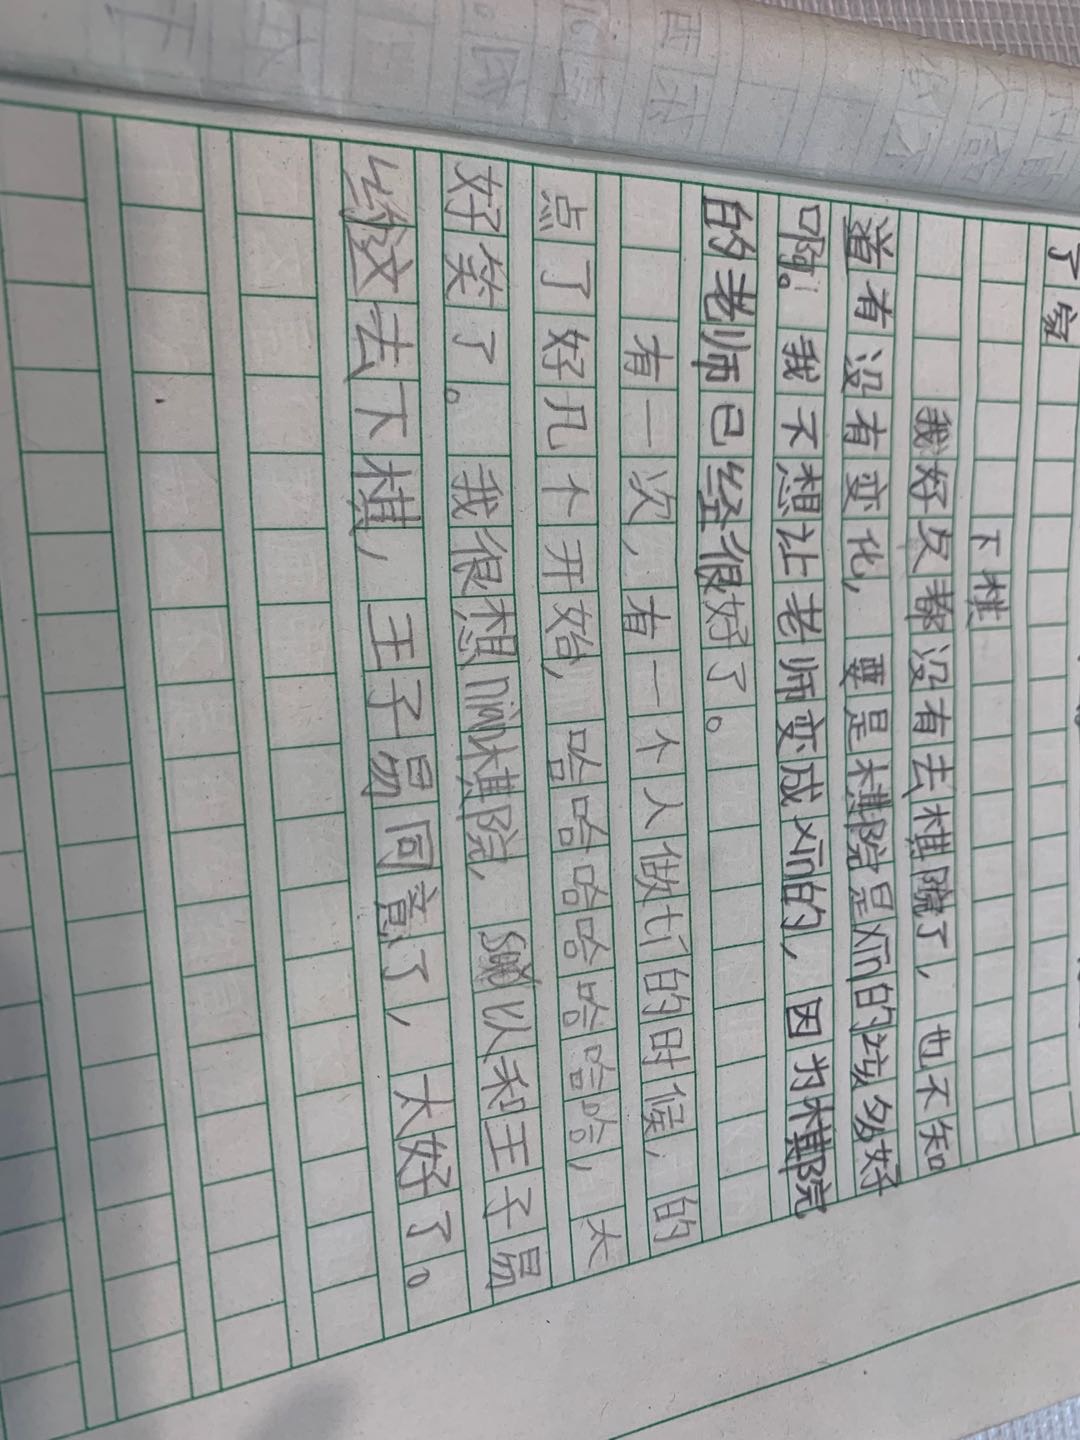 下棋
我好久都没有去棋院了，也不知
道有没有变化，要是棋院是xīn的该多好
啊。我不想让老师变成xīn的，因为棋院
的老师已经很好了。
有一次，有一个人做tí的时候，的
点了好几个开始，哈哈哈哈哈哈哈，太
好笑了。我很想niàn棋院，以和王子易
去下棋，王子易同意了，太好了。